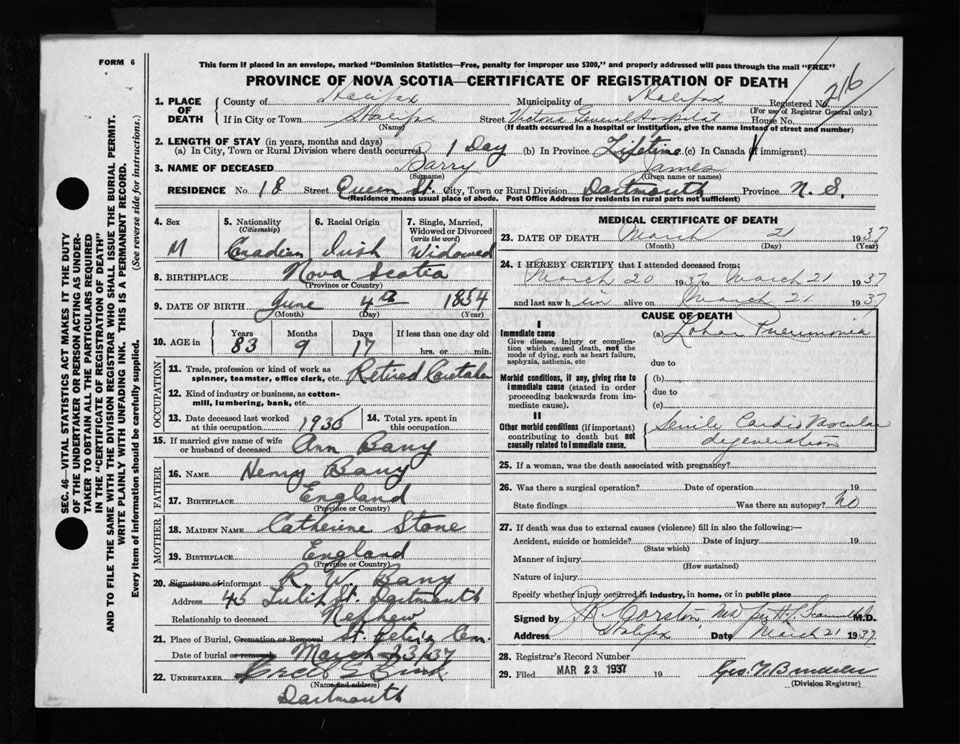 FORM 6
This form if placed in an envelope, marked "Dominion Statistics—Free, penalty for improper use $300," and properly addressed will pass through the mail "FREE"
PROVINCE OF NOVA SCOTIA—CERTIFICATE OF REGISTRATION OF DEATH
SEC. 46—VITAL STATISTICS ACT MAKES IT THE DUTY
OF THE UNDERTAKER OR PERSON ACTING AS UNDER-
TAKER TO OBTAIN ALL THE PARTICULARS REQUIRED
IN THE "CERTIFICATE OF REGISTRATION OF DEATH"
AND TO FILE THE SAME WITH THE DIVISION REGISTRAR WHO SHALL ISSUE THE BURIAL PERMIT.
WRITE PLAINLY WITH UNFADING INK. THIS IS A PERMANENT RECORD.
Every item of information should be carefully supplied. (See reverse side for instructions.)
1. PLACE OF DEATH County of Halifax Municipality of Halifax Registered No. 216
(For use of Registrar General only)
If in City or Town Halifax Street Victoria General Hospital House No.
(Name) (If death occurred in a hospital or institution, give the name instead of street and number)
2. LENGTH OF STAY (in years, months and days)
(a) In City, Town or Rural Division where death occurred 1 Day (b) In Province Lifetime (c) In Canada (if immigrant)
3. NAME OF DECEASED Barry James
(Surname) (Given name or names)
RESIDENCE No. 18 Street Queen St. City, Town or Rural Division Dartmouth Province N. S.
(Residence means usual place of abode. Post Office Address for residents in rural parts not sufficient)
4. Sex M
5. Nationality (Citizenship) Canadian
6. Racial Origin Irish
7. Single, Married, Widowed or Divorced (write the word) Widowed
8. BIRTHPLACE Nova Scotia
(Province or Country)
9. DATE OF BIRTH June 4th 1854
(Month) (Day) (Year)
10. AGE in Years 83 Months 9 Days 17 If less than one day old hrs. or min.
OCCUPATION
11. Trade, profession or kind of work as spinner, teamster, office clerk, etc. Retired
12. Kind of industry or business, as cotton-mill, lumbering, bank, etc.
13. Date deceased last worked at this occupation 1935
14. Total yrs. spent in this occupation
15. If married give name of wife or husband of deceased Ann Barry
FATHER
16. NAME Henry Barry
17. BIRTHPLACE England
(Province or Country)
MOTHER
18. MAIDEN NAME Catherine Stone
19. BIRTHPLACE England
(Province or Country)
20. Signature of informant R. W. Barry
Address 45 Tulip St. Dartmouth
Relationship to deceased Nephew
21. Place of Burial, Cremation or Removal St. Peter's Cem.
Date of burial or removal March 23/37
22. UNDERTAKER Zink
(Name and address)
Dartmouth
MEDICAL CERTIFICATE OF DEATH
23. DATE OF DEATH March 21 1937
(Month) (Day)
24. I HEREBY CERTIFY that I attended deceased from:
March 20 1937 to March 21 1937
and last saw him alive on March 21 1937
CAUSE OF DEATH
I
Immediate cause
Give disease, injury or complication which caused death, not the mode of dying, such as heart failure, asphyxia, asthenia, etc
(a) Lobar Pneumonia
due to
Morbid conditions, if any, giving rise to immediate cause (stated in order proceeding backwards from immediate cause).
(b)
due to
(c)
II
Other morbid conditions (if important) contributing to death but not causally related to immediate cause.
Senile Cardio Vascular
degeneration
25. If a woman, was the death associated with pregnancy?
26. Was there a surgical operation? Date of operation 19
State findings Was there an autopsy? No
27. If death was due to external causes (violence) fill in also the following:—
Accident, suicide or homicide? Date of injury 19
(State which)
Manner of injury
(How sustained)
Nature of injury
Specify whether injury occurred in industry, in home, or in public place
Signed by J R Corston M.D.
Address Halifax Date March 21 1937
28. Registrar's Record Number
29. Filed MAR 23 1937 19
(Division Registrar)